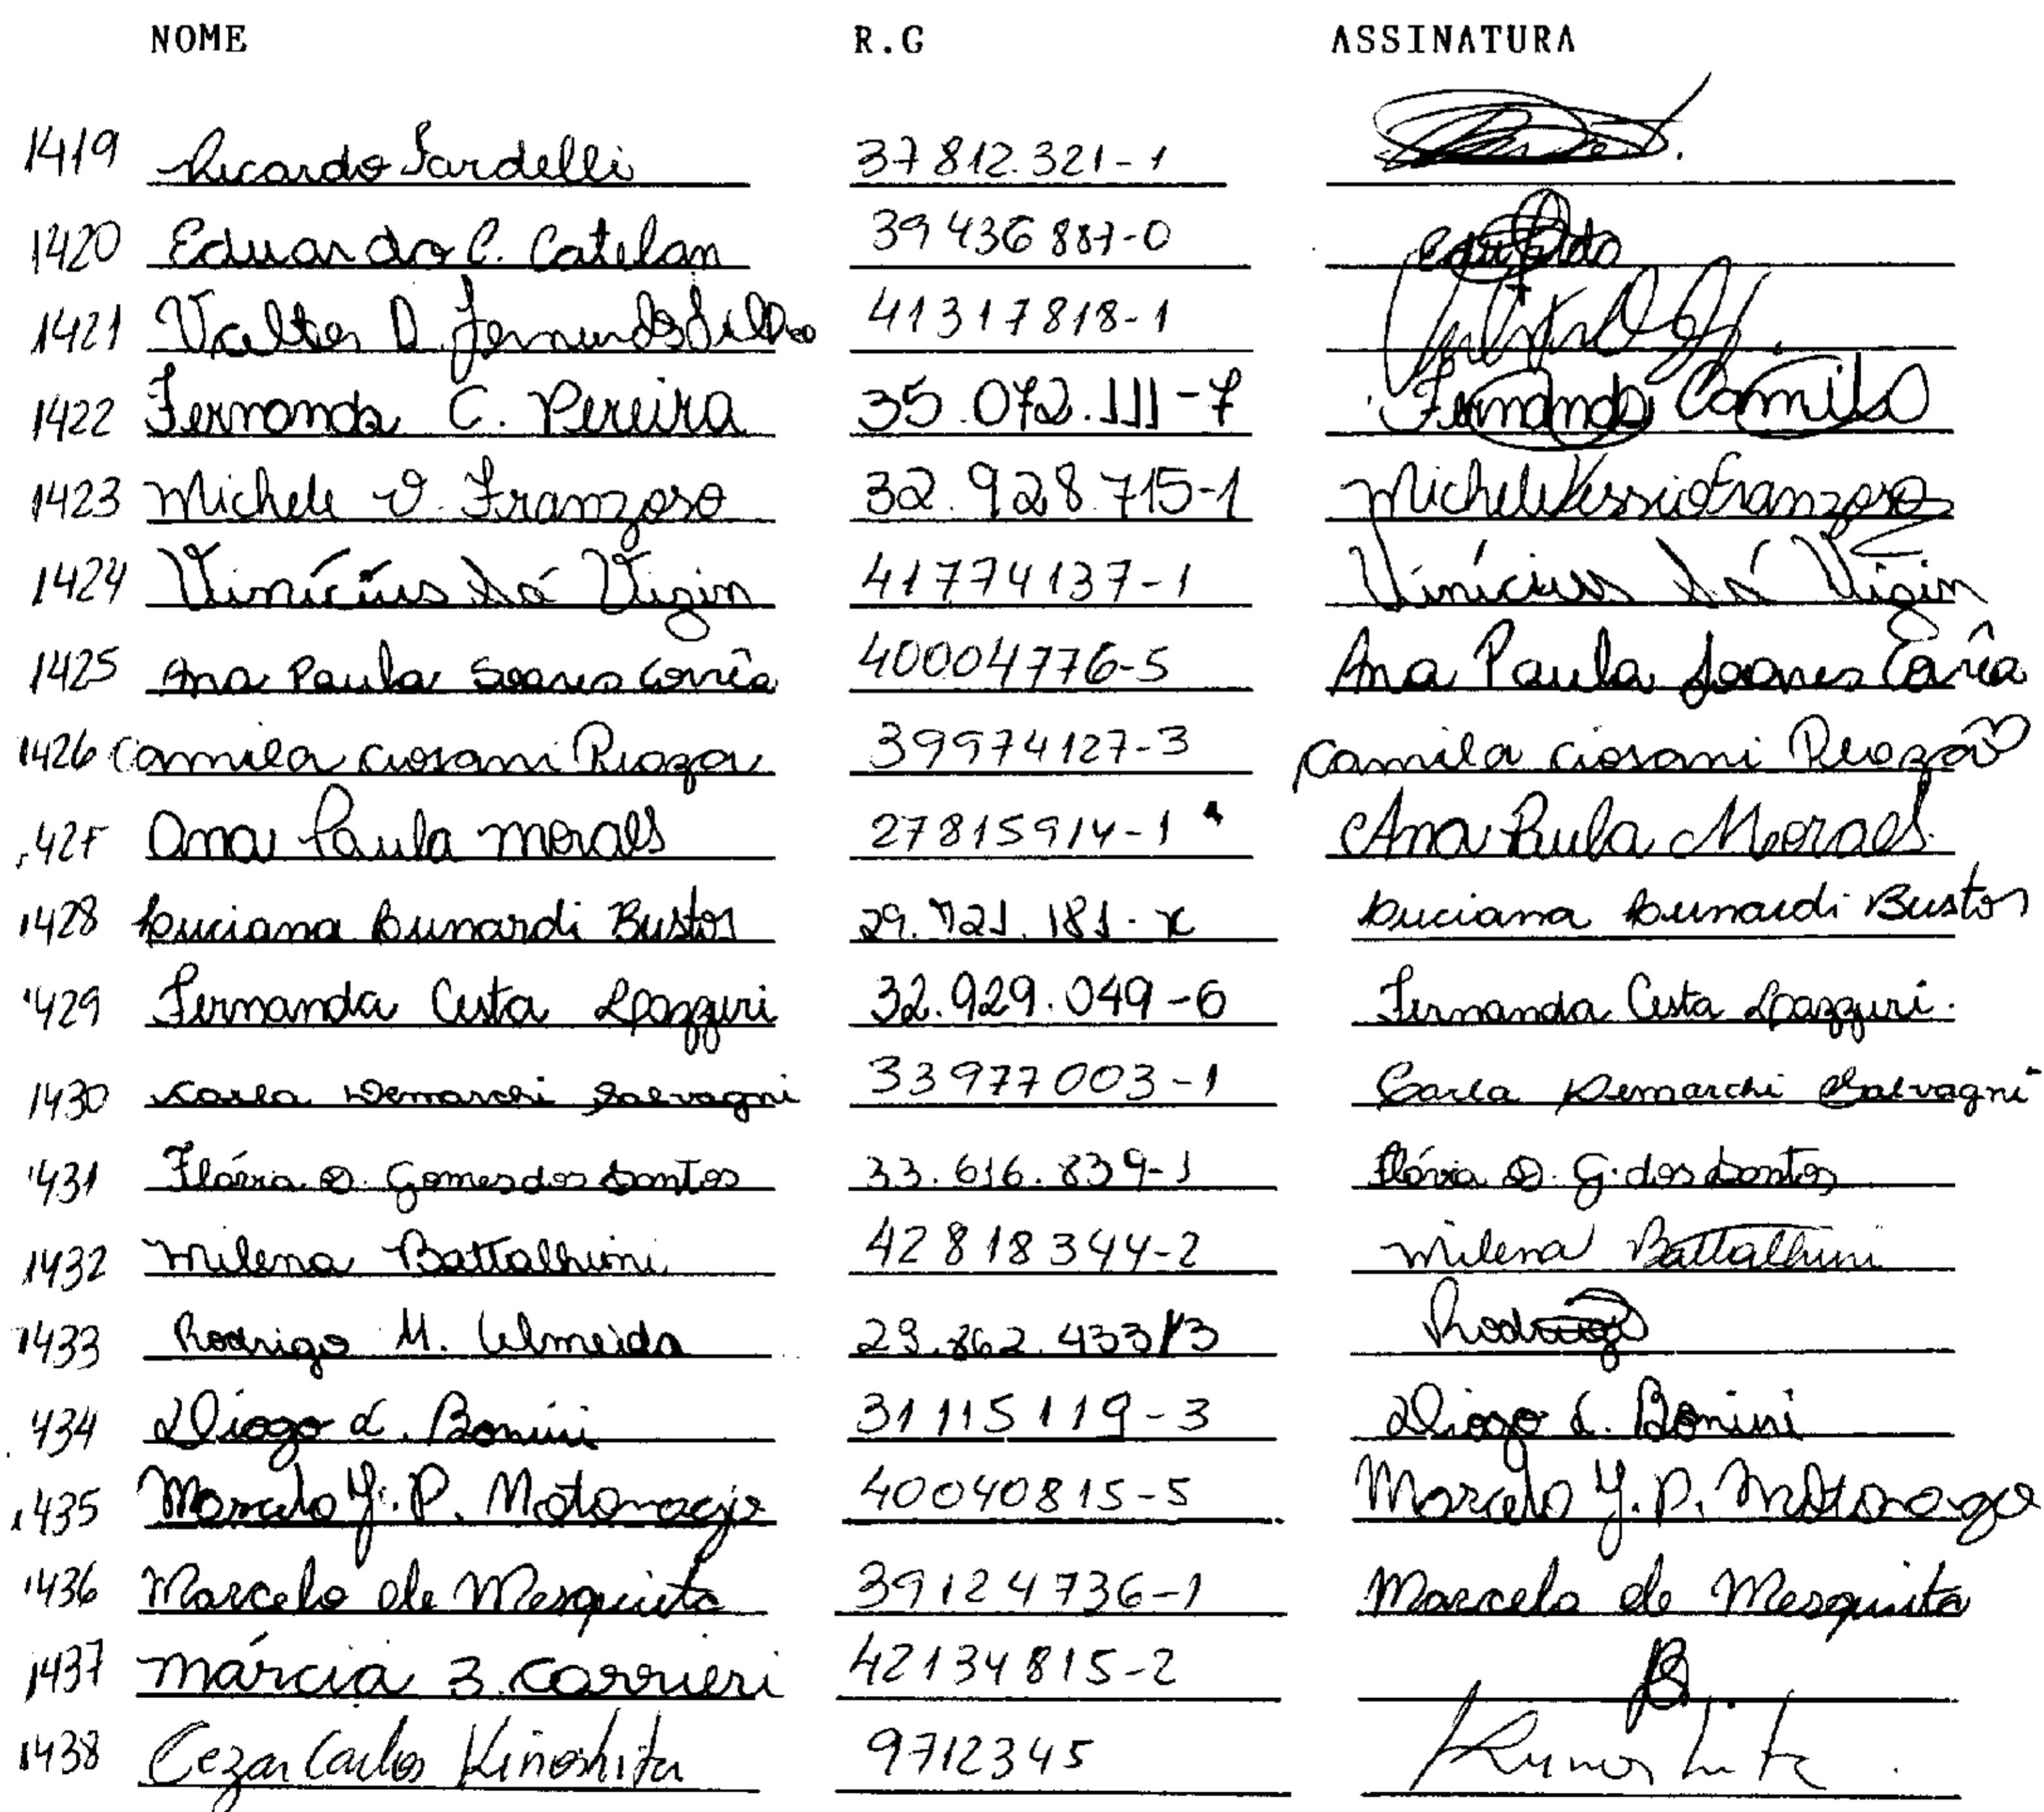 NOME R.G ASSINATURA
1419 Ricardo Sardelli 37812.321-1
1420 Eduardo C. Catelan 39436887-0 Eduardo
1421 Valter D. Fernandes Filho 41317818-1
1422 Fernanda C. Pereira 35.072.111-7 Fernanda Camilo
1423 Michele V. Franzoso 32.928.715-1 Michele Franzoso
1424 Vinícius Sá Vigin 41774137-1 Vinícius Sá Vigin
1425 Ana Paula Soares Corrêa 40004776-5 Ana Paula Soares Corrêa
1426 Camila Ciosani 39974127-3 Camila Ciosani
1427 Ana Paula Moraes 27815914-1 Ana Paula Moraes
1428 Luciana Lunardi Bustos 29.721.181-x Luciana Lunardi Bustos
1429 Fernanda Custa Spazzuri 32.929.049-6 Fernanda Custa Spazzuri.
1430 Carla Demarchi Salvagni 33977003-1 Carla Demarchi Salvagni
1431 Flávia D. Gomes dos Santos 33.616.839-1 Flávia D. G. dos Santos
1432 Milena Battalhini 42818344-2 Milena Battalhini
1433 Rodrigo M. Almeida 29.862.433/3 Rodrigo
1434 Diogo L. Bonini 31115119-3 Diogo L. Bonini
1435 Marcelo Y. P. Motonaga 40040815-5 Marcelo Y. P. Motonaga
1436 Marcelo de Mesquita 39124736-1 Marcelo de Mesquita
1437 Márcia B. Carrieri 42134815-2 B.
1438 Cezar Carlos Kinoshita 9712345 Kinoshita